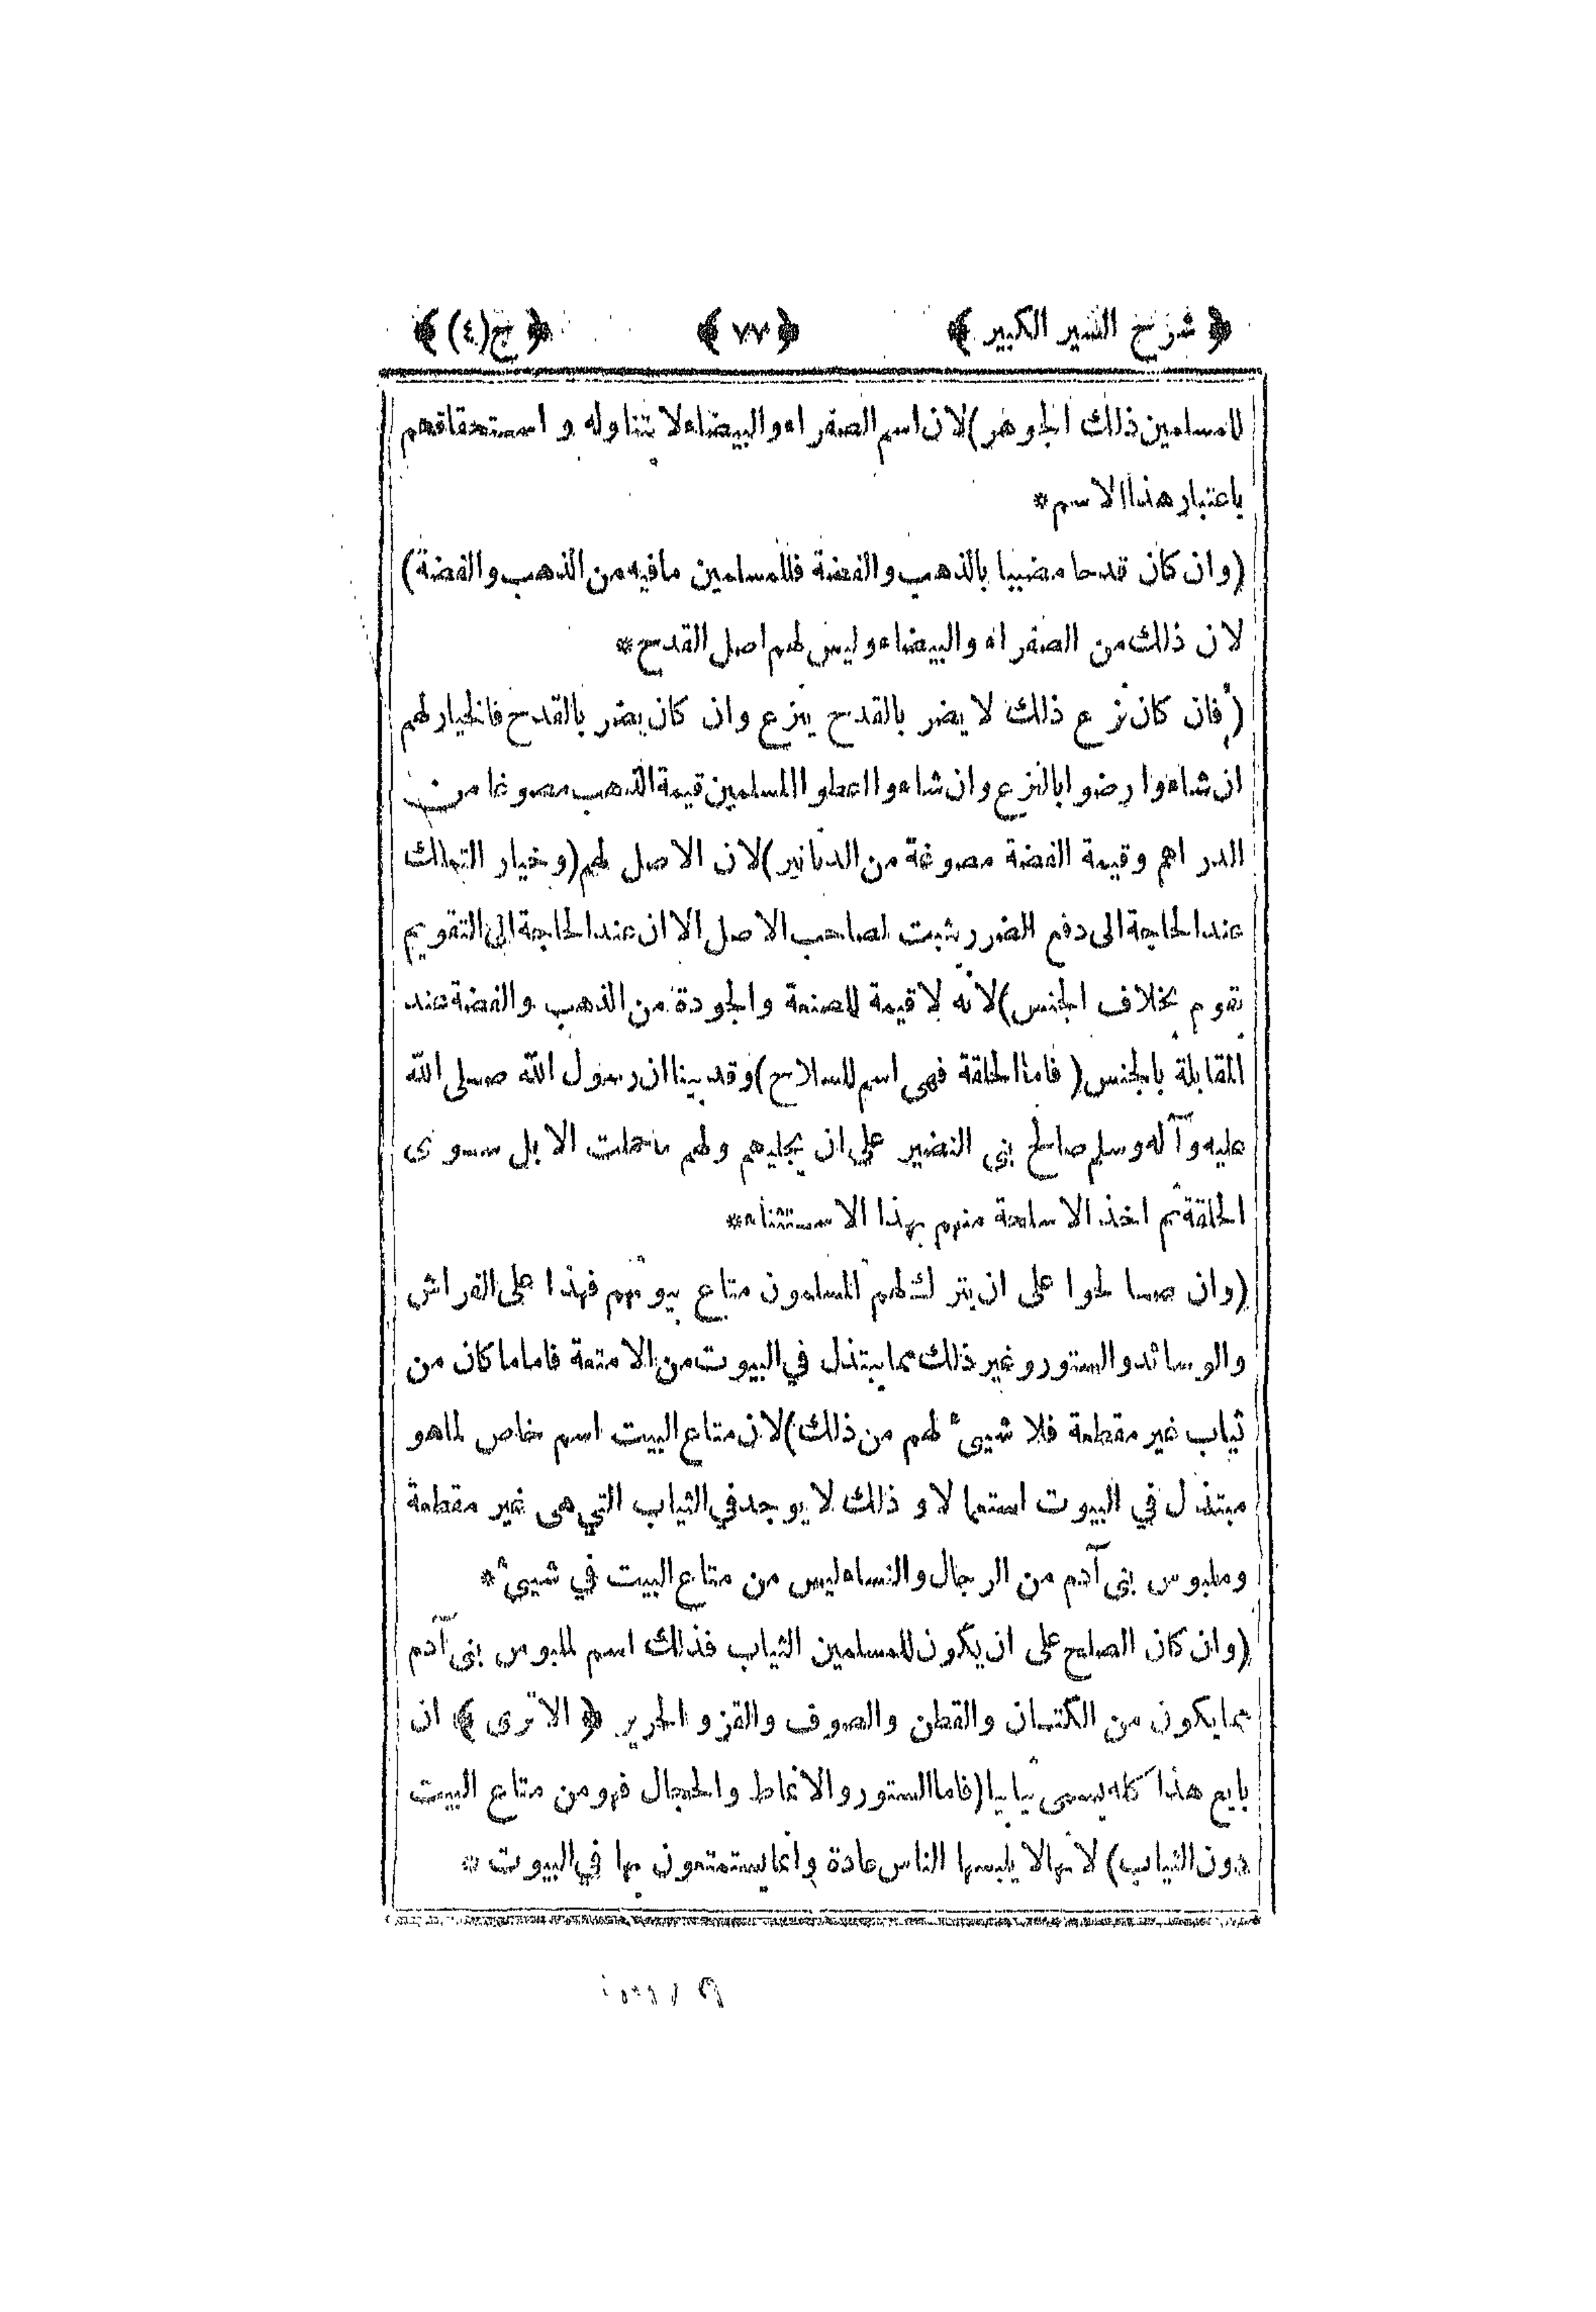 ﴿ شرح السير الكبير ﴾ ﴿ ٧٧ ﴾ ﴿ ج(٤) ﴾
للمسلمين ذلك الجوهر) لان اسم الصفراء والبيضاء لا يتناوله و استحقاقهم
باعتبار هذا الاسم*
(وان كان قدحا مضببا بالذهب والفضة فللمسلمين ما فيه من الذهب والفضة)
لان ذلك من الصفراء والبيضاء وليس لهم اصل القدح*
(فان كان نزع ذلك لا يضر بالقدح ينزع وان كان يضر بالقدح فالخيار لهم
ان شاءوا رضوا بالنزع وان شاءوا اعطوا المسلمين قيمة الذهب مصوغا من
الدراهم وقيمة الفضة مصوغة من الدنانير) لان الاصل لهم (وخيار التملك
عند الحاجة الى دفع الضرر يثبت لصاحب الاصل الا ان عند الحاجة الى التقويم
يقوم بخلاف الجنس) لانه لا قيمة للصنعة والجودة من الذهب والفضة عند
المقابلة بالجنس (فاما الحلقة فهى اسم للسلاح) وقد بينا ان رسول الله صلى الله
عليه وآله وسلم صالح بنى النضير على ان يجليهم ولهم ما حملت الابل سوى
الحلقة ثم اخذ الاسلحة منهم بهذا الاستثناء*
(وان صالحوا على ان يترك لهم المسلمون متاع بيوتهم فهذا على الفراش
والوسائد والستور وغير ذلك مما يبتذل في البيوت من الامتعة فاما ما كان من
ثياب غير مقطعة فلا شيئ لهم من ذلك) لان متاع البيت اسم خاص لما هو
مبتذل في البيوت استعمالا و ذلك لا يوجد في الثياب التي هى غير مقطعة
وملبوس بنى آدم من الرجال والنساء ليس من متاع البيت في شيئ*
(وان كان الصلح على ان يكون للمسلمين الثياب فذلك اسم لملبوس بنى آدم
مما يكون من الكتان والقطن والصوف والقز و الحرير ﴿ الا ترى ﴾ ان
بايع هذا كله يسمى ثيابيا (فاما الستور والانماط والحجال فهو من متاع البيت
دون الثياب) لانها لا يلبسها الناس عادة وانما يستمتعون بها في البيوت *